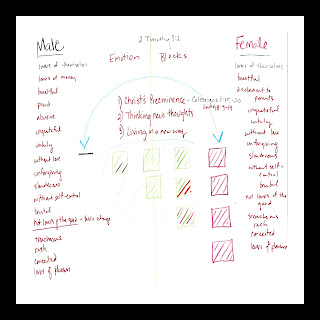 2 Timothy 3:2
Male
Female
Emotion Blocks
lovers of themselves
lovers of money
boastful
proud
abusive
ungrateful
unholy
without love
unforgiving
slanderous
without self-control
brutal
not lovers of the good
treacherous
rash
conceited
lovers of pleasure
1) Christ's Preeminence - Colossians 1:15-20
2) Thinking new thoughts
3) Living in a new way
lovers of themselves
boastful
disobedient to
parents
ungrateful
unholy
without love
unforgiving
slanderous
without self-
control
brutal
not lovers of the
good
treacherous
rash
conceited
lovers of pleasure